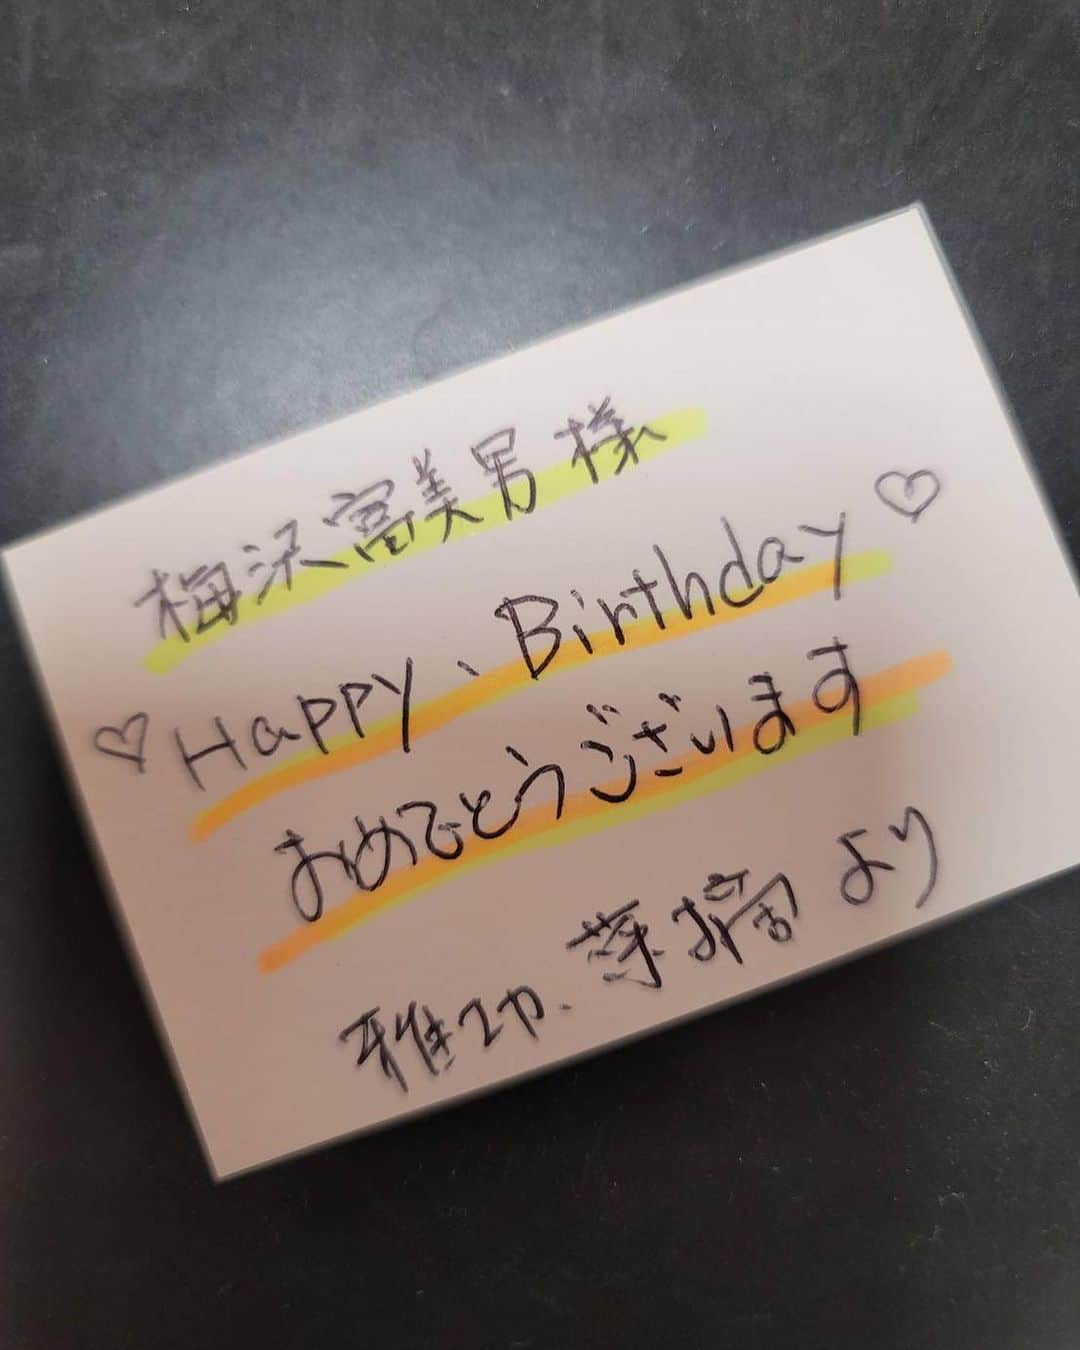 梅沢富美男 様
♡ Happy、Birthday ♡
おめでとうございます
雅功、 より